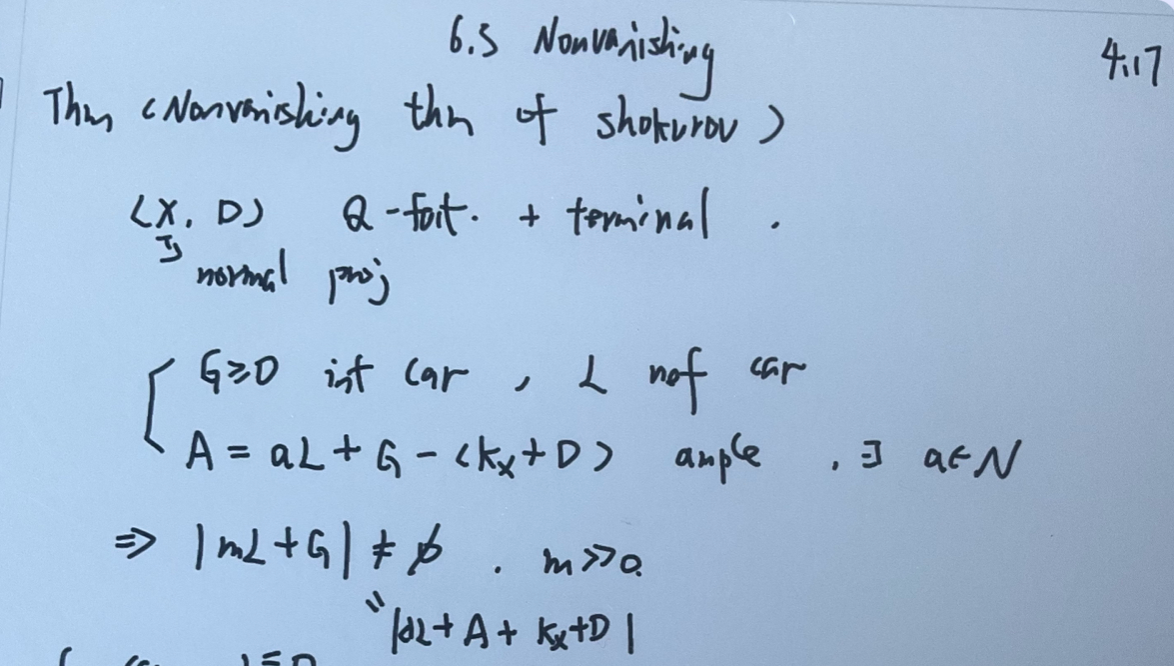 6.5 Nonvanishing
4.17
Thm (Nonvanishing thm of shokurov)
(X, D) Q-fait. + terminal.
normal proj
{ G≥0 int Car, L nef car
A = aL + G - (Kx + D) ample, ∃ a∈N
⇒ |mL + G| ≠ ∅. m>>0.
|aL + A + Kx+D|
≡0